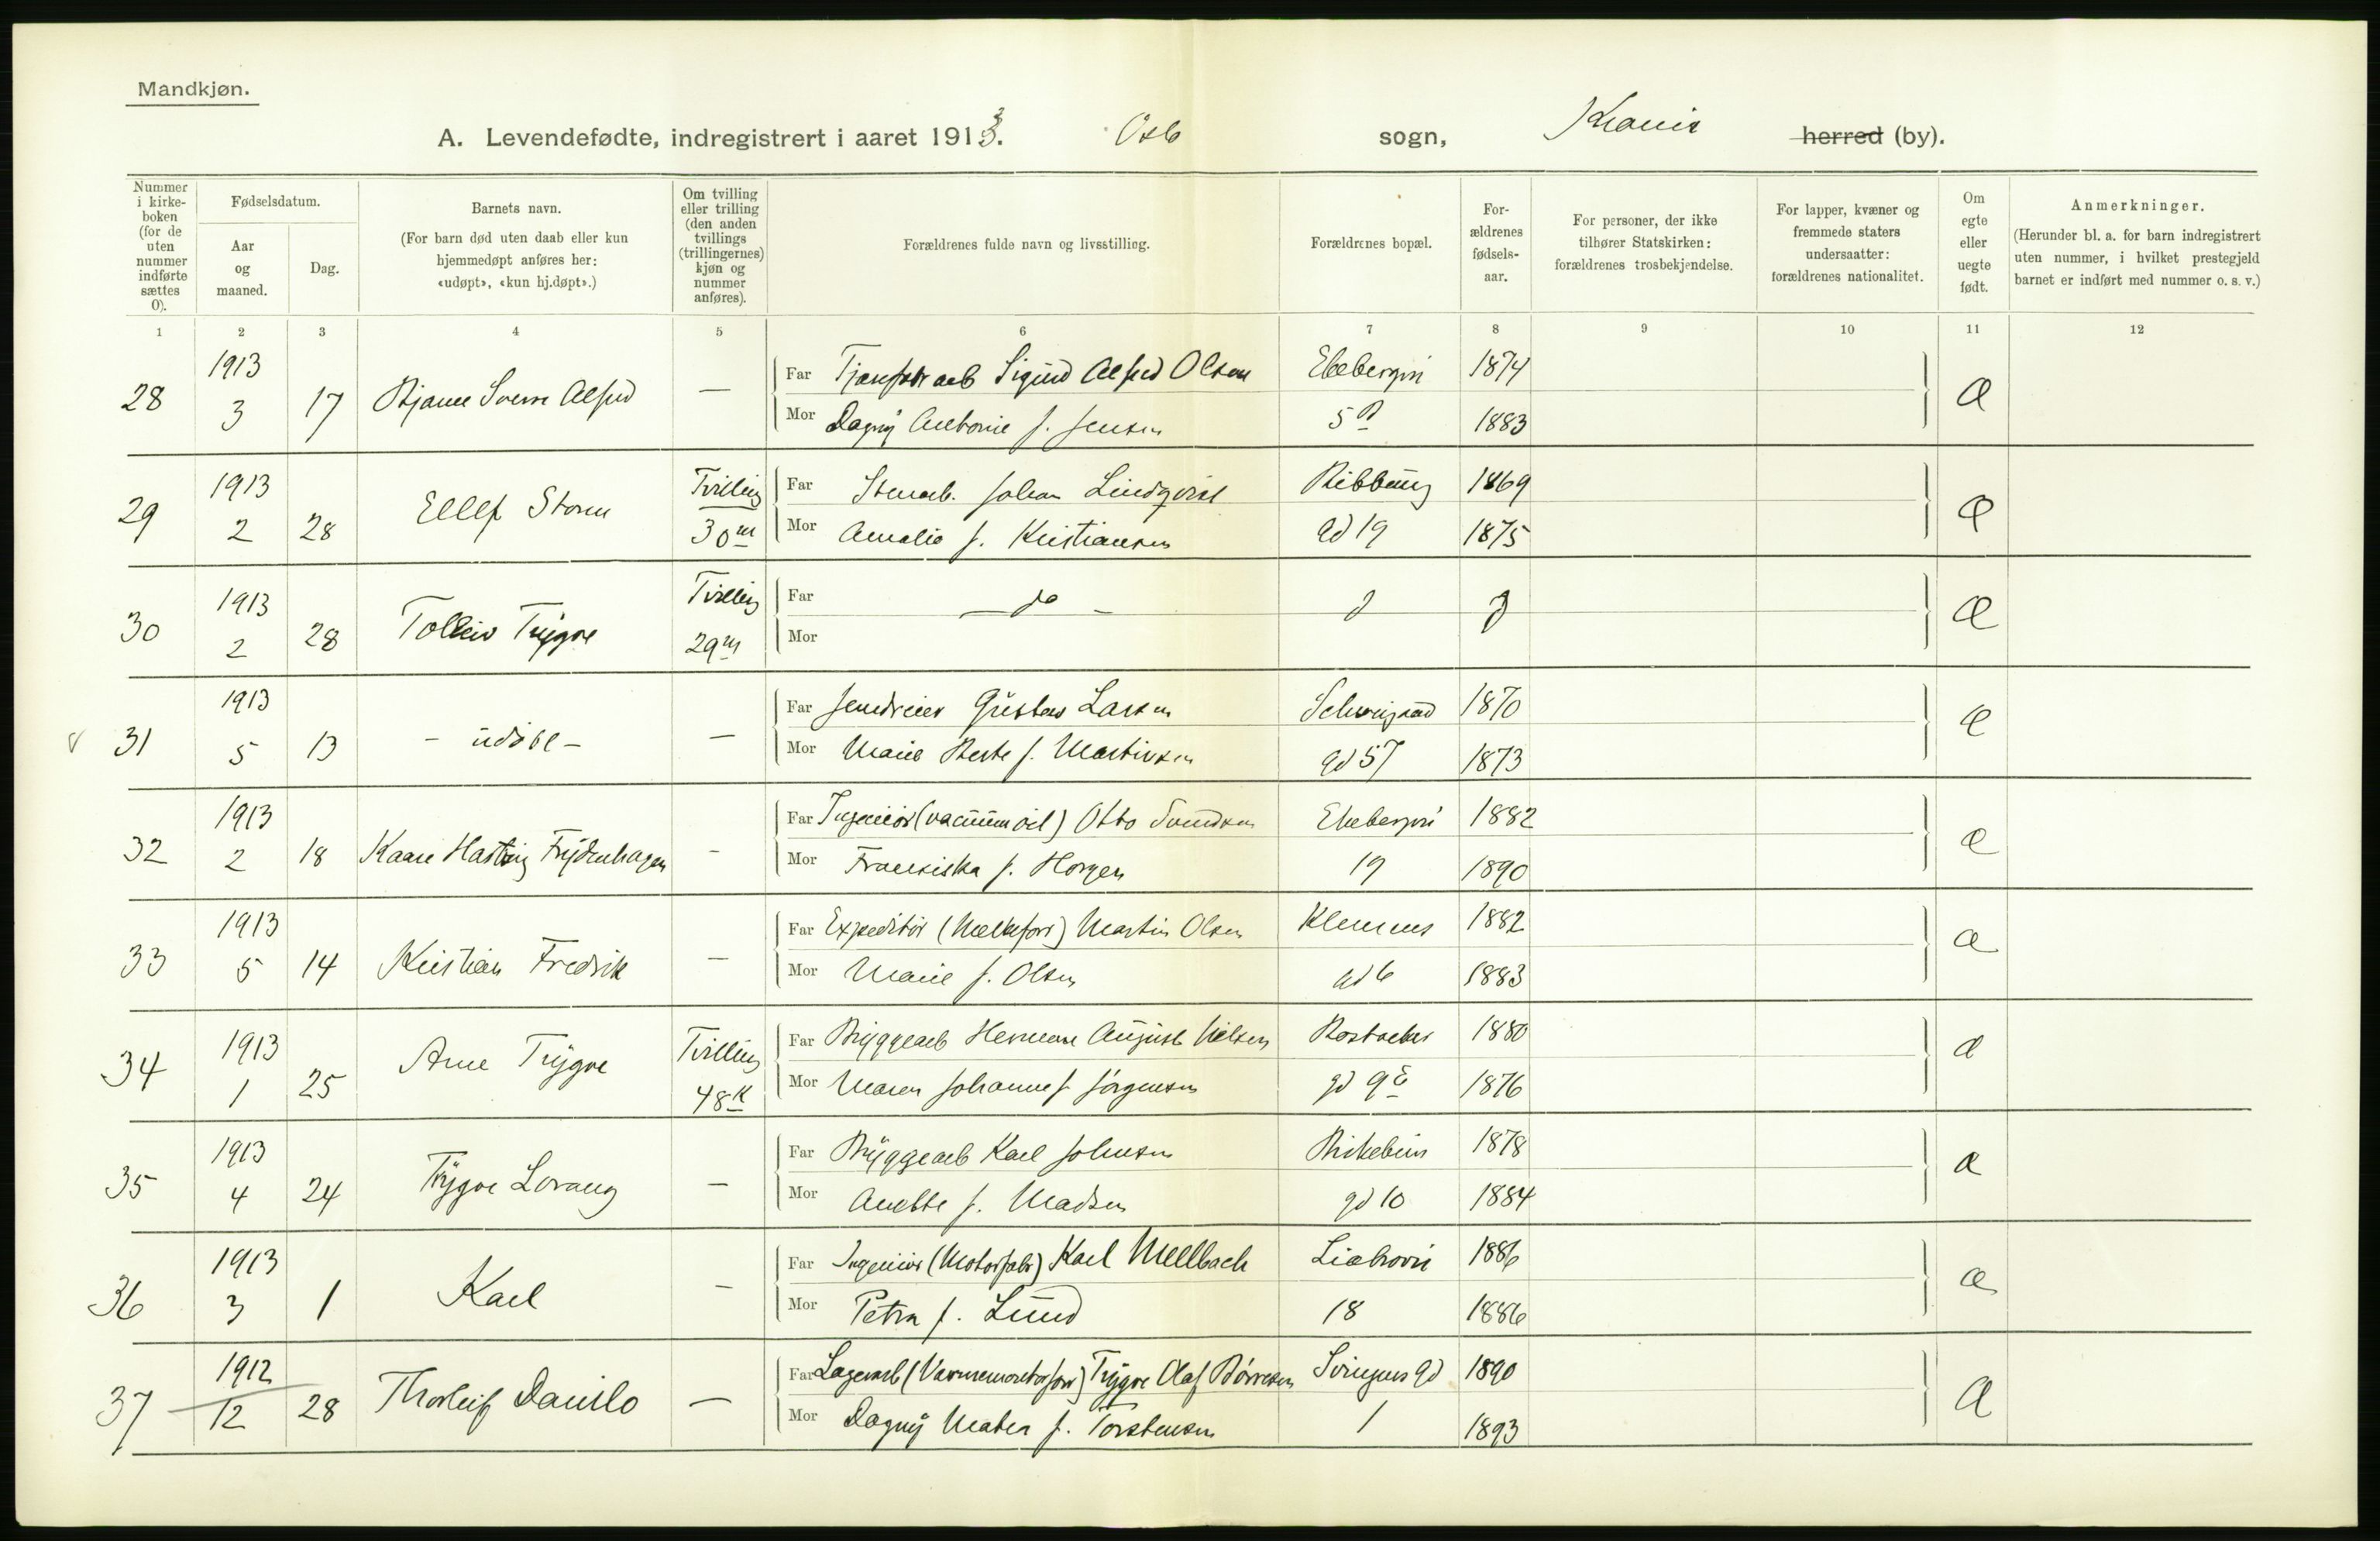 Mandkjøn.
A. Levendefødte, indregistrert i aaret 1913. Oslo sogn, Krania herred (by).
Nummer i kirke-boken (for de uten nummer indførte sættes 0).
Fødselsdatum.
Aar og maaned.
Dag.
Barnets navn.
(For barn død uten daab eller kun hjemmedøpt anføres her: «udøpt», «kun hj.døpt».)
Om tvilling eller trilling (den anden tvillings (trillingernes) kjøn og nummer anføres).
Forældrenes fulde navn og livsstilling.
Forældrenes bopæl.
For-ældrenes fødsels-aar.
For personer, der ikke tilhører Statskirken: forældrenes trosbekjendelse.
For lapper, kvæner og fremmede staters undersaatter: forældrenes nationalitet.
Om egte eller uegte født.
Anmerkninger.
(Herunder bl. a. for barn indregistrert uten nummer, i hvilket prestegjeld barnet er indført med nummer o. s. v.)
1 2 3 4 5 6 7 8 9 10 11 12
28 1913 3 17 Bjarne Sverre Alfred — Far Sigurd Alfred Olsen Ekebergvn 1874
Mor Dagny Antonie f. Jensen 5 B 1883
29 1913 2 28 Ellef Storm Tvilling 30 m Far Stenarb. Johan Lindqvist Ribbung 1869
Mor Amalie f. Kristiansen gd 19 1875
30 1913 2 28 Tolleiv Trygve Tvilling 29 m Far — do —
Mor
31 1913 5 13 — udøbt — — Far Gustav Larsen Schweigaard 1870
Mor Marie Berte f. Martinsen gd 57 1873
32 1913 2 18 Kaare Hartvig Frydenhagen — Far Ingeniør (vacuum oil) Otto Svendsen Ekebergvn 1882
Mor Fransiska f. Horgen 19 1890
33 1913 5 14 Kristian Fredrik — Far Expeditør (Melkeforr) Martin Olsen Klemens 1882
Mor Marie f. Olsen gd 6 1883
34 1913 1 25 Arne Trygve Tvilling 48 K Far Bryggearb Herman August Nilsen Bostveker 1880
Mor Maren Johanne f. Jørgensen gd 9 E 1876
35 1913 4 24 Trygve Lorang — Far Bryggearb Karl Johnsen Birkebein 1878
Mor Anette f. Madsen gd 10 1884
36 1913 3 1 Karl — Far Ingeniør (Motorfabr) Karl Mellbach Liabrovn 1886
Mor Petra f. Lund 18 1886
37 1912 12 28 Thorleif Danilo — Far Lagerarb (Varmemontørforr) Trygve Olaf Børresen Svingens gd 1890
Mor Dagny Matea f. Torstensen 1 1893